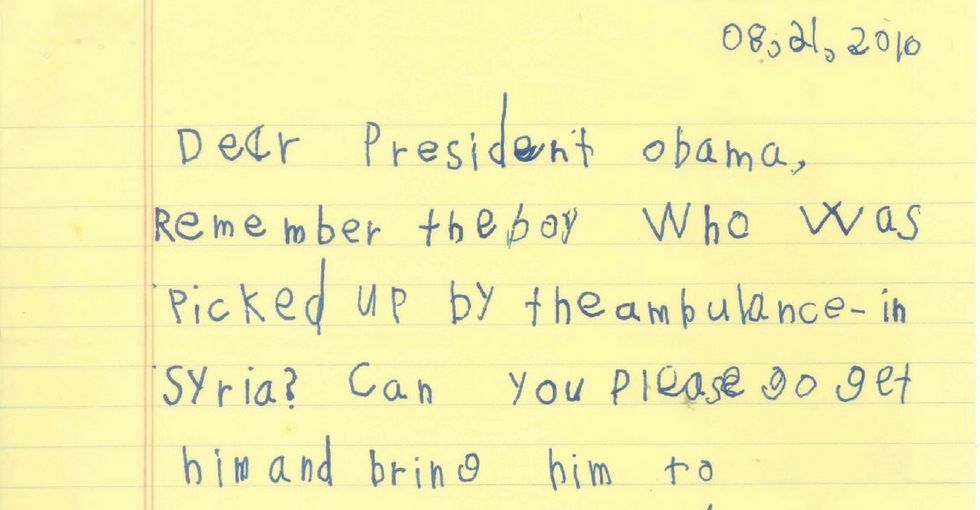 08,21,2010
Dear President obama,
Remember the boy Who Was
Picked up by the ambulance-in
Syria? Can you please go get
him and bring him to